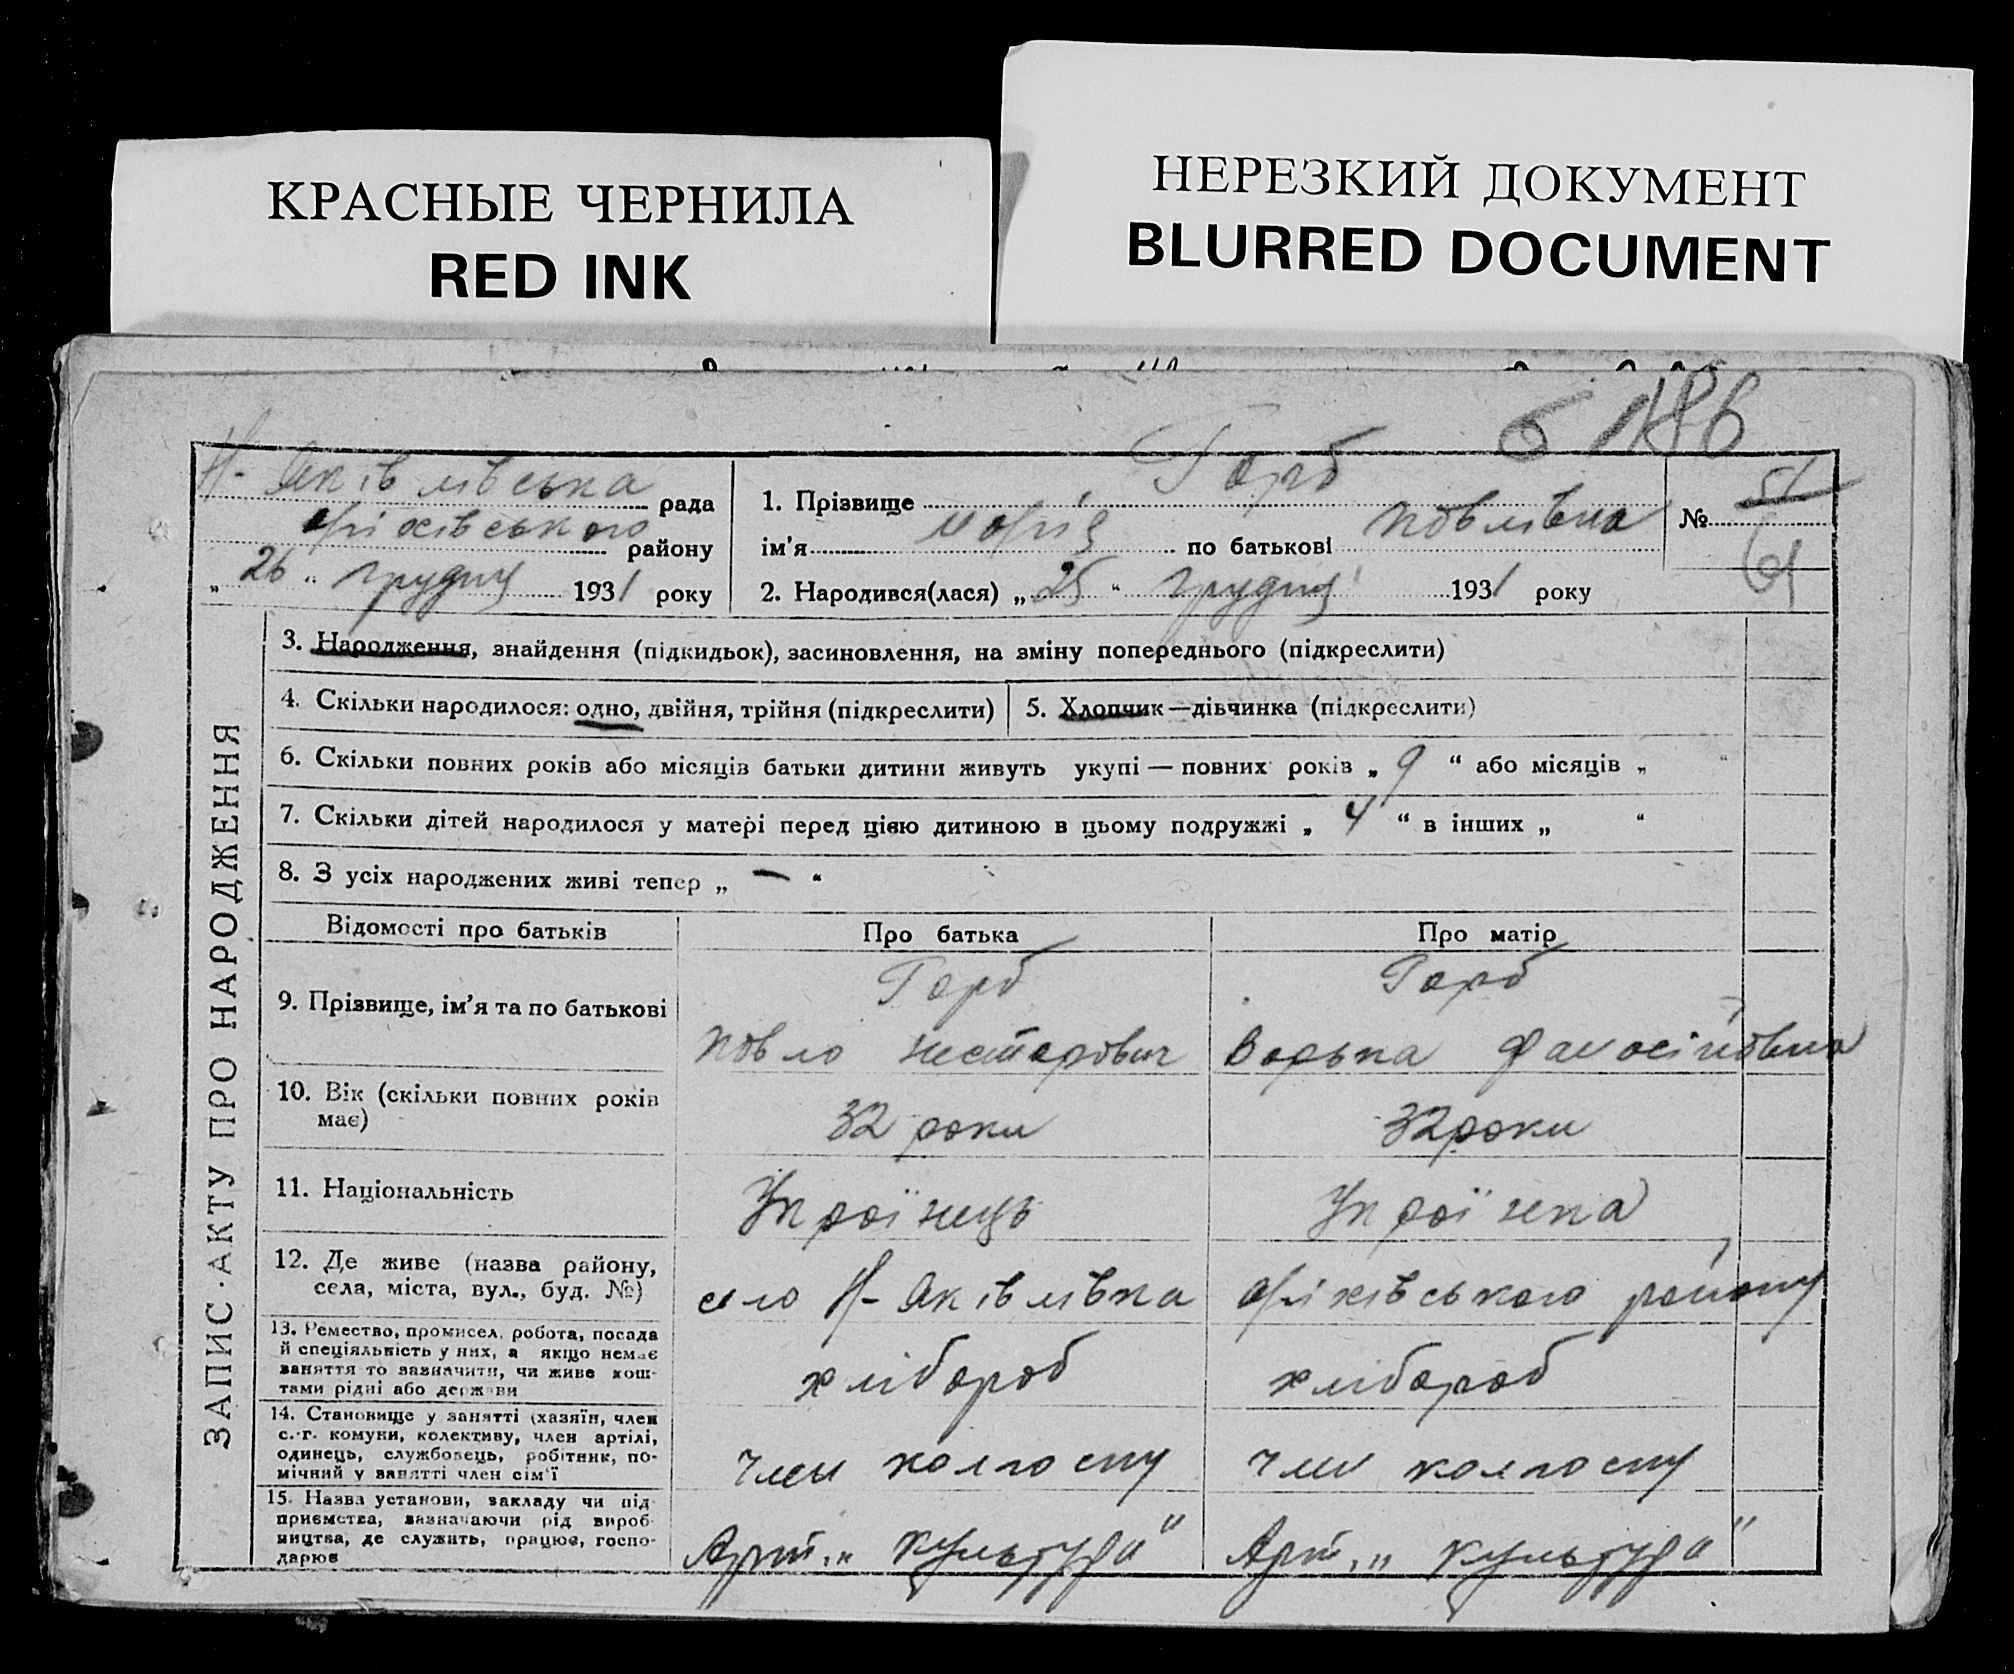 КРАСНЫЕ ЧЕРНИЛА
RED INK
НЕРЕЗКИЙ ДОКУМЕНТ
BLURRED DOCUMENT
б 186
Н-Яківлівська рада
оріхівського району
„ 26 “ грудня 1931 року
1. Прізвище Горб
ім'я марія по батькові павлівна
2. Народився(лася) „ 25 “ грудня 1931 року
№ 51
61
ЗАПИС АКТУ ПРО НАРОДЖЕННЯ
3. Народження, знайдення (підкидьок), засиновлення, на зміну попереднього (підкреслити)
4. Скільки народилося: одно, двійня, трійня (підкреслити)
5. Хлопчик—дівчинка (підкреслити)
6. Скільки повних років або місяців батьки дитини живуть укупі — повних років „ 9 “ або місяців „ “
7. Скільки дітей народилося у матері перед цією дитиною в цьому подружжі „ 4 “ в інших „ “
8. З усіх народжених живі тепер „ — “
Відомості про батьків Про батька Про матір
9. Прізвище, ім'я та по батькові
Горб
павло нестерович
Горб
Варька
10. Вік (скільки повних років
має)
32 роки
32 роки
11. Національність
Українець
Українка
12. Де живе (назва району,
села, міста, вул., буд. №)
село Н-Яківлівка оріхівського району
13. Ремество, промисел, робота, посада
й спеціяльність у них, а якщо немає
заняття то зазначити, чи живе кош-
тами рідні або держави
хлібороб
хлібороб
14. Становище у занятті (хазяїн, член
с.-г. комуни, колективу, член артілі,
одинець, службовець, робітник, по-
мічний у занятті член сім'ї
член колгоспу
член колгоспу
15. Назва установи, закладу чи під
приємства, зазначаючи рід вироб
ництва, де служить, працює, госпо-
дарює
Арт. „ культура “
Арт. „ культура “